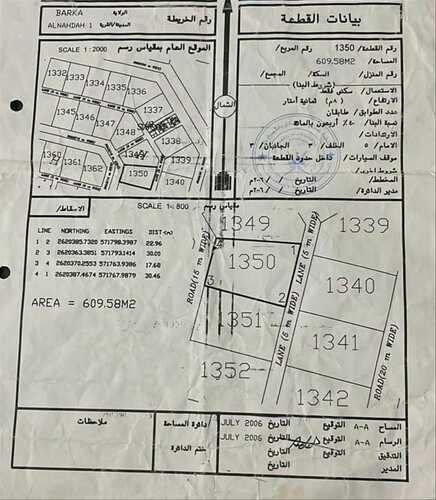 بيانات القطعة
رقم القطعة / 1350 رقم المربع /
المساحة / 609.58M2
(شروط البنا)
رقم المنزل / السكة / المجمع /
الاستعمال / سكني فقط
الارتفاع / (٨م) ثمانية أمتار
عدد الطوابق / طابقان
نسبة البنا / ٤٠٪ أربعون بالمائة
الارتدادات /
الامام / ٥ الخلف / ٣ الجانبان / ٣
موقف السيارات / داخل حدود القطعة
شروط اخرى /
المخطط / التاريخ / / ٢٠٠٦م
مدير الدائرة / التاريخ / / ٢٠٠٦م
رقم الخريطة
BARKA الولاية
ALNAHDAH 1 المدينة/القرية
الموقع العام بمقياس رسم
SCALE 1: 2000
1332
1333
1334
1335
1336
1337
1345
1346
1347
1348
1338
1349
1339
1350
1340
1360
1361
1362
الشمال
الاسقاط/
SCALE 1: 800
مقياس رسم
LINE NORTHING EASTINGS DIST(m)
1 2 2620385.7320 571798.3987 22.96
2 3 2620363.3851 571793.1414 30.00
3 4 2620370.2553 571763.9386 17.60
4 1 2620387.4674 571767.9879 30.46
AREA = 609.58M2
1349
1339
1350
1340
1351
1341
1352
1342
1
2
3
4
ROAD(15 m WIDE)
LANE (5 m WIDE)
LANE (5 m WIDE)
ROAD(20 m WIDE)
ملاحظات
دائرة المساحة
ختم الدائرة
المساح A-A التوقيع التاريخ JULY 2006
الرسام A-A التوقيع التاريخ JULY 2006
التدقيق التوقيع التاريخ
المدير التوقيع التاريخ